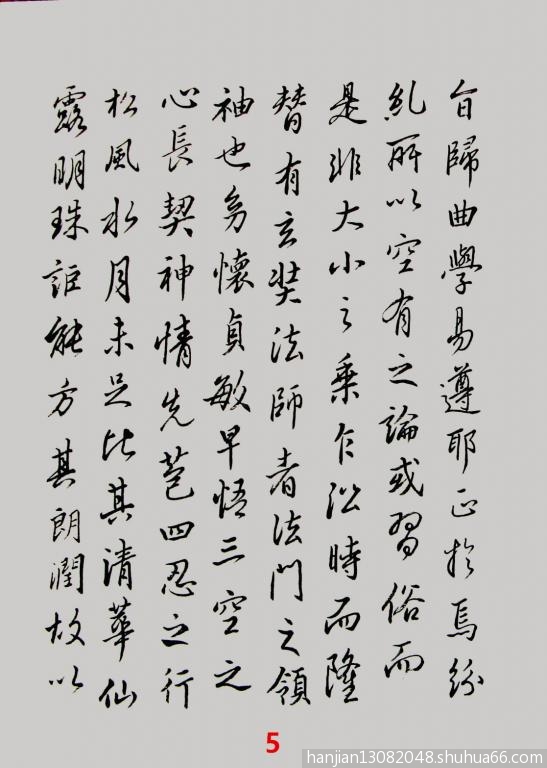 旨歸曲學易遵耶正於焉紛
糺所以空有之論或習俗而
是非大小之乘乍沿時而隆
替有玄奘法師者法門之領
袖也幼懷貞敏早悟三空之
心長契神情先苞四忍之行
松風水月未足比其清華仙
露明珠詎能方其朗潤故以
5
hanjian13082048.shuhua66.com